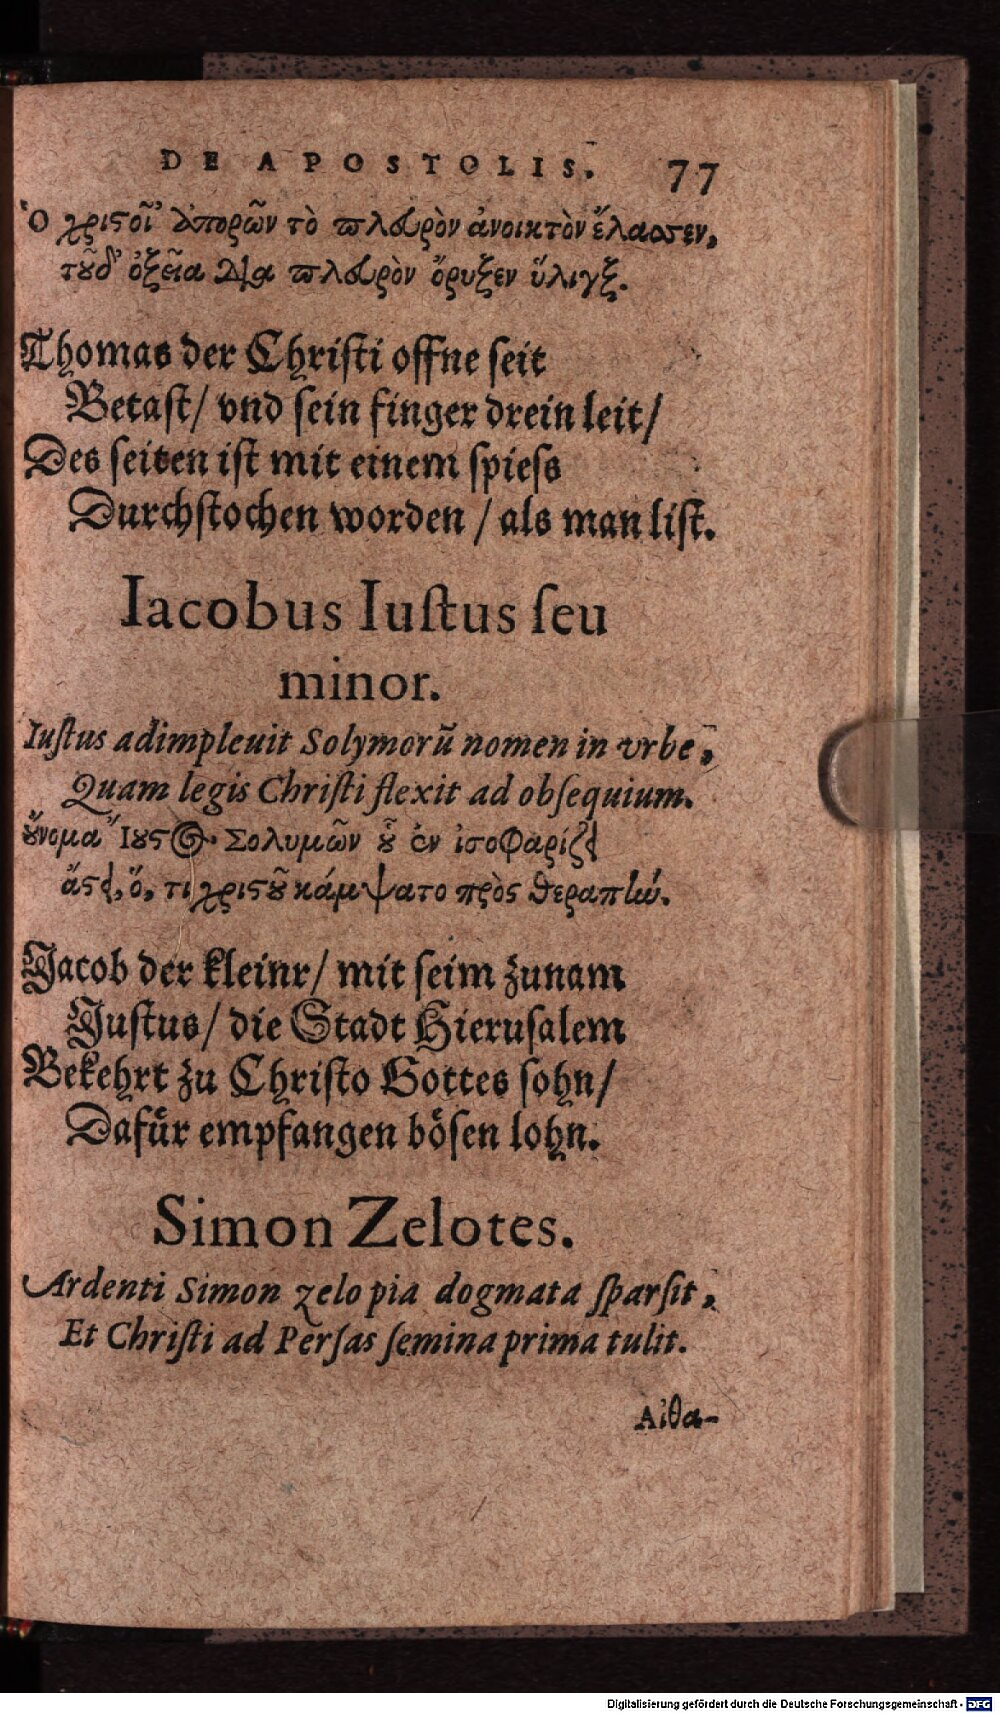 DE APOSTOLIS. 77
Ὁ χριστοῖ᾽ ἀπορῶν τὸ πλευρὸν ἀνοικτὸν
τοῦδ᾽ ὀξεῖα Δῃα πλευρὸν ὄρυξεν ὕλιγξ.
Thomas der Chriſti offne ſeit
Betaſt/ vnd ſein finger drein leit/
Des ſeiten iſt mit einem ſpieſs
Durchſtochen worden / als man liſt.
Iacobus Iuſtus ſeu
minor.
Iuſtus adimpleuit Solymorū nomen in vrbe,
Quam legis Chriſti flexit ad obſequium.
οὔνομα Ἴουστος Σολυμῶν οὗ ἐν ἰσοφαρίζει
ἄστει, ὅ, τι χριστοῦ κάμψατο πρὸς θεραπείω.
Jacob der kleinr/ mit ſeim zunam
Juſtus/ die Stadt Hieruſalem
Bekehrt zu Chriſto Gottes ſohn/
Dafür empfangen böſen lohn.
Simon Zelotes.
Ardenti Simon zelo pia dogmata ſparſit,
Et Chriſti ad Perſas ſemina prima tulit.
Αἰθα-
Digitalisierung gefördert durch die Deutsche Forschungsgemeinschaft - DFG